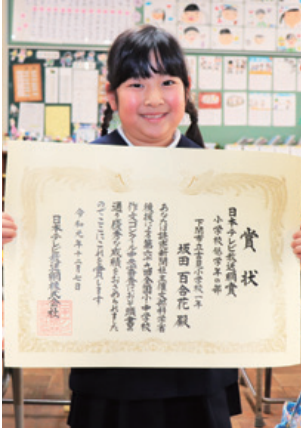 賞状
日本テレビ放送網賞
小学校低学年の部
下関市立吉見小学校一年
坂田 百合花 殿
あなたは読売新聞社主催文部科学省
後援による第六十九回全国小・中学校
作文コンクール中央審査において頭書の
通り優秀な成績をおさめられました
のでここにこれを賞します
令和元年十二月七日
日本テレビ放送網株式会社